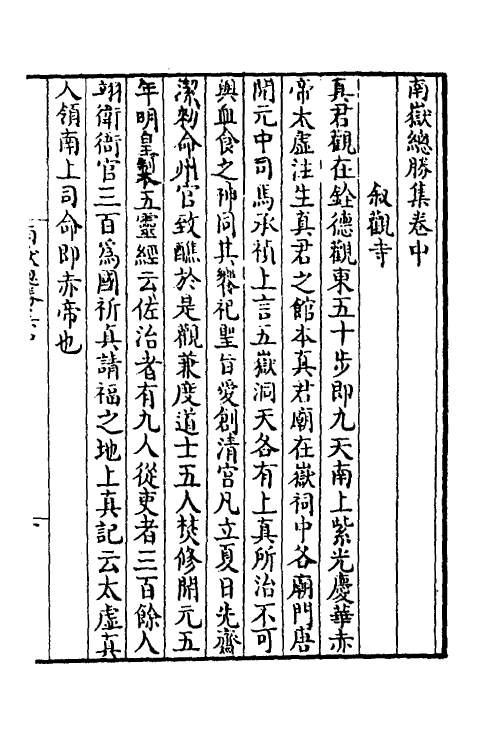 南嶽總勝集卷中
叙觀寺
真君觀在銓德觀東五十步即九天南上紫光慶華赤
帝太虛注生真君之館本真君廟在嶽祠中各廟門唐
開元中司馬承禎上言五嶽洞天各有上真所治不可
與血食之神同其饗祀聖旨爰創清宮凡立夏日先齋
潔勑命州官致醮於是觀兼度道士五人焚修開元五
年明皇製本五靈經云佐治者有九人從吏者三百餘人
翊衛衙官三百為國祈真請福之地上真記云太虛真
人領南上司命即赤帝也